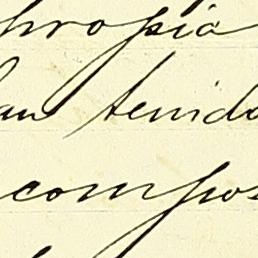 hropia
han tenido
compos